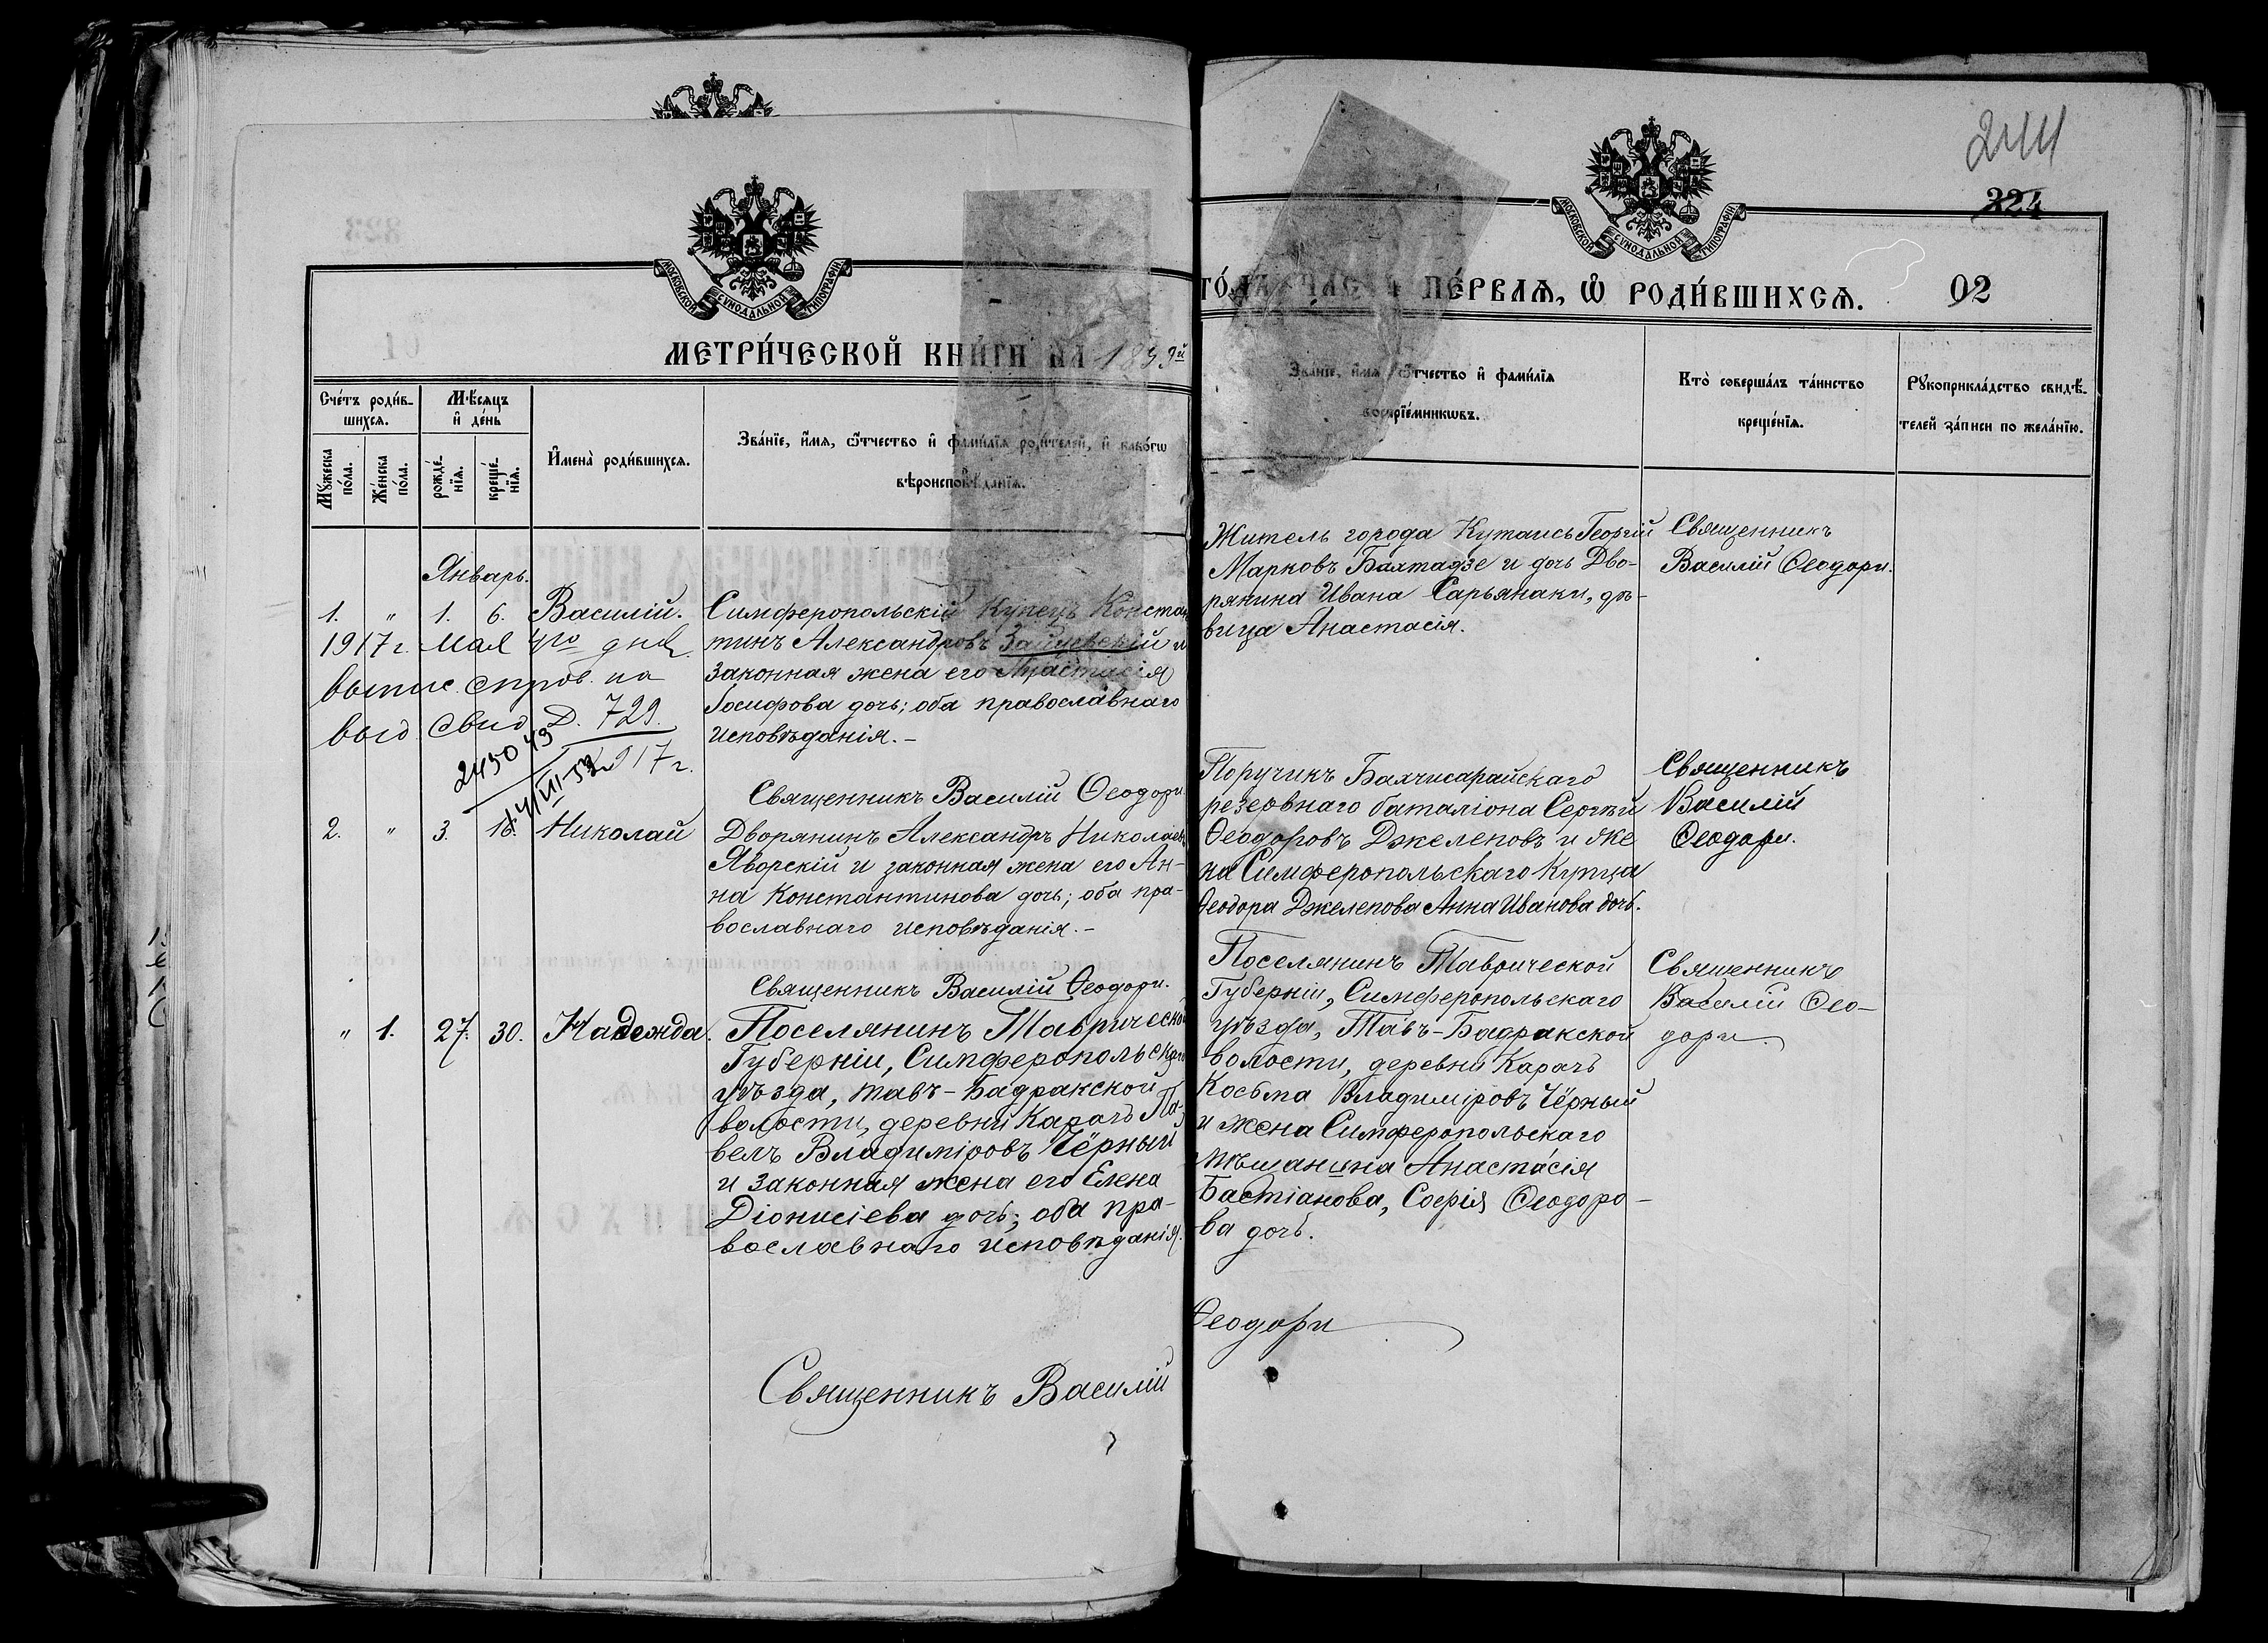 МОСКОВСКОЙ СѴНОДАЛЬНОЙ ТИПОГРАФІИ
МЕТРИ́ЧЕСКОЙ КНИ́ГИ НА 1899й
Сче́тъ роди́в-
шихсѧ.
Мѣ́сѧцъ
и҆ де́нь
Мꙋ́жеска
по́ла.
Же́нска
по́ла.
рожде́-
нїѧ.
креще́-
нїѧ.
И҆мена̀ роди́вшихсѧ.
Зва́нїе, и҆́мѧ, ѻ҆́тчество и҆ фами́лїѧ роди́телей, и҆ како́гѡ
вѣроисповѣ́данїѧ.
Январь.
1. " 1. 6. Василій.
Симферопольскій Купецъ Констан
тинъ Александровъ и
законная жена его
Іосифова дочь; оба православнаго
исповѣданія.-
1917 г. Мая 4го дня
выпис. спров. на
выд. свид. Д. 729.
1917 г.
245043
14/VII-53
Священникъ Василій Ѳеодори
2. " 3. 16. Николай
Дворянинъ Александръ Николаевъ
Яворскій и законная жена его Ан-
на Константинова дочь; оба пра-
вославнаго исповѣданія.-
Священникъ Василій Ѳеодори.
" 1. 27. 30. Надежда.
Поселянинъ Таврической
Губерніи, Симферопольскаго
уѣзда, Тавъ-Бадракской
волости, деревни Карачъ Па-
велъ Владиміровъ Чёрный
и законная жена его Елена
Діонисіева дочь; оба пра-
вославнаго исповѣданія.
Священникъ Василій
244
324
МОСКОВСКОЙ СѴНОДАЛЬНОЙ ТИПОГРАФІИ
ГО́ДЪ ЧАСТЬ ПЕ́РВАѦ, Ѡ҆ РОДИ́ВШИХСѦ. 02
Зва́нїе, и҆́мѧ, ѻ҆́тчество и҆ фами́лїѧ
воспрїе́мникѡвъ.
Кто̀ соверша́лъ та́инство
креще́нїѧ.
Рꙋкоприкла́дство свидѣ́-
телей за́писи по жела́нїю.
Житель города Кутаись Георгій
Марковъ Бахтадзе и дочь Дво-
рянина Ивана Сарьянаки, дѣ-
вица Анастасія.
Священникъ
Василій Ѳеодори.
Поручикъ Бахчисарайскаго
резервнаго баталіона Сергѣй
Ѳеодоровъ Джелеповъ и же
на Симферопольскаго Купца
Ѳеодора Джелепова Анна Иванова дочь.
Священникъ
Василій
Ѳеодори.
Поселянинъ Таврической
Губерніи, Симферопольскаго
уѣзда, Тавъ-Бадракской
волости, деревни Карачъ
Косьма Владиміровъ Чёрный
и жена Симферопольскаго
мѣщанина Анастасія
Бастіанова, Софія Ѳеодоро-
ва дочь.
Священникъ
Василій Ѳео-
дори
Ѳеодори